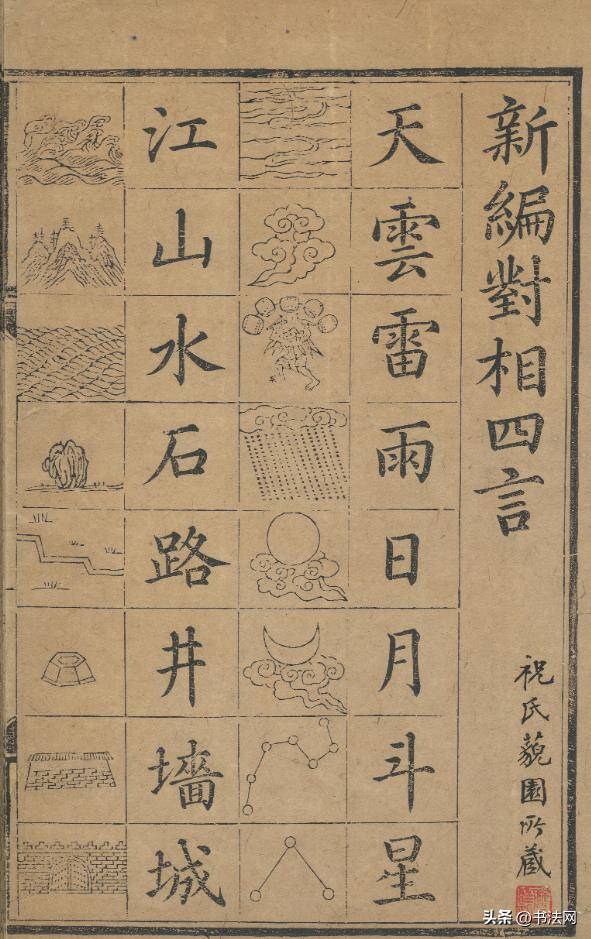 新編對相四言
祝氏藐園所藏
天雲雷雨日月斗星
江山水石路井墻城
头条@书法网